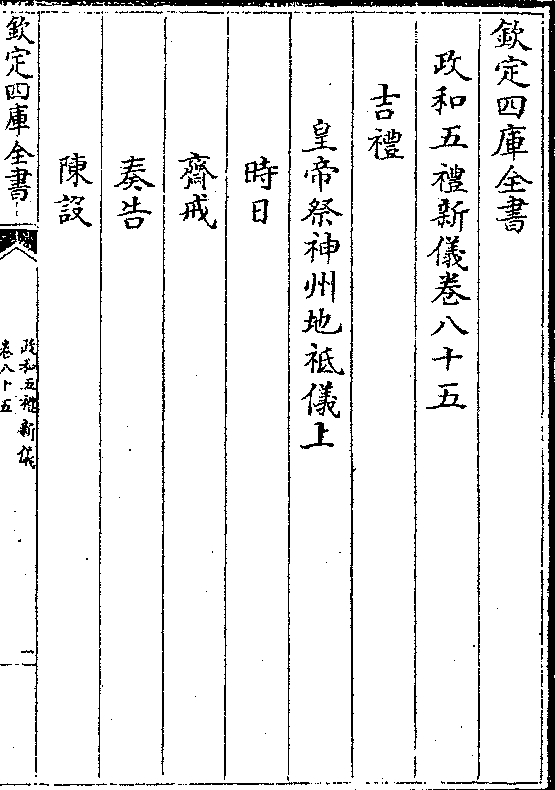 欽定四庫全書
政和五禮新儀卷八十五
吉禮
皇帝祭神州地祗儀上
時日
齋戒
奏告
陳設
欽定四庫全書
政和五禮新儀
卷八十五
一